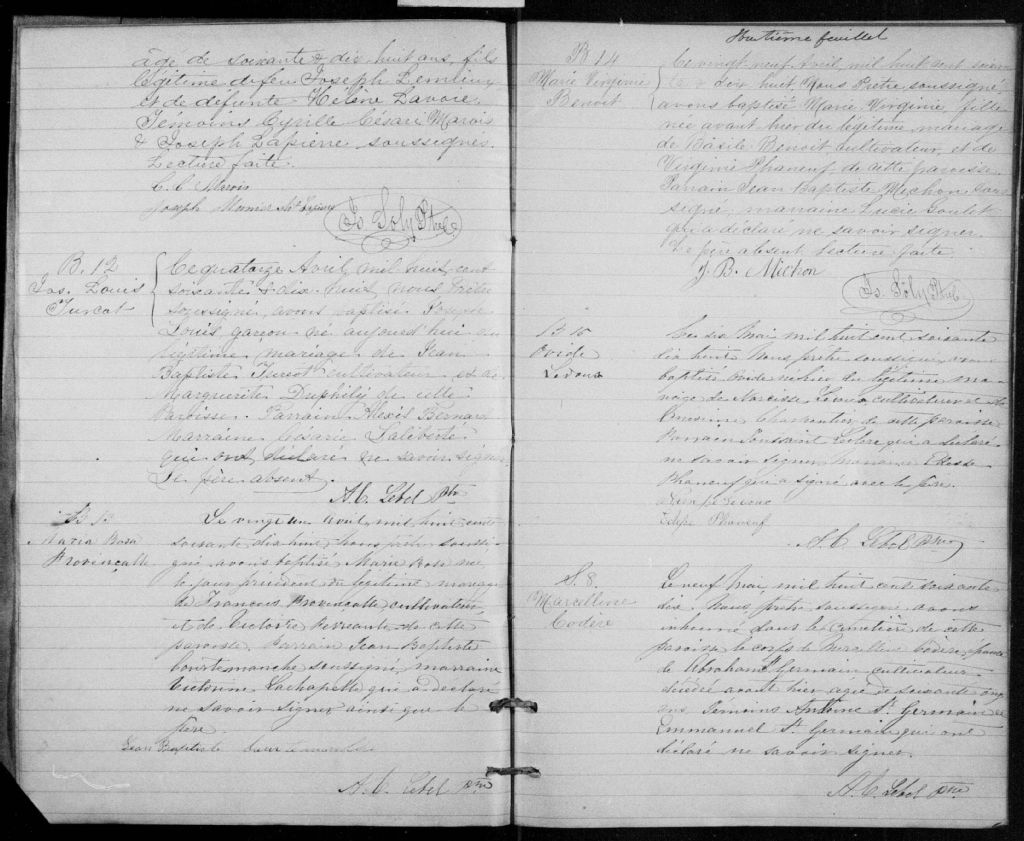 âgé de soixante & dix huit ans, fils
légitime de feu Joseph Lemieux
et de défunte Hélène Lavoie.
Témoins Cyrille Césaire Marois
& Joseph Lapierre soussignés.
Lecture faite.
C. C. Marois
Joseph Meunier dit Lapierre
Is. Soly Ptre
B. 12
Jos. Louis
Turcot
Ce quatorze Avril, mil huit cent
soixante & dix huit, nous Prêtre
soussigné, avons baptisé Joseph
Louis garçon né aujourd'hui du
légitime mariage de Jean
Baptiste Turcot cultivateur et de
Marguerite Duphily de cette
Paroisse. Parrain Alexis Bernard
Marraine Césarie Laliberté
qui ont déclaré ne savoir signer
Le père absent.
A. C. Lebel Ptre
B 13
Maria Rosa
Provençalle
Le vingt un Avril mil huit cent
soixante dix huit nous prêtre soussi-
gné avons baptisé Marie Rosa née
le jour précédent du légitime mariage
de François Provençalle cultivateur
et de Victorie de cette
paroisse. Parrain Jean Baptiste
Courtemanche soussigné, marraine
Lachapelle qui a déclaré
ne savoir signer ainsi que le
père.
Jean Baptiste
A. C. Lebel Ptre
Huitième feuillet
B 14
Marie Virginie
Benoit
Ce vingt neuf Avril, mil huit cent soixan
te & dix huit, Nous Prêtre soussigné,
avons baptisé Marie Virginie, fille
née avant hier du légitime mariage
de Basile Benoit cultivateur et de
Virginie Phaneuf de cette paroisse
Parrain Jean Baptiste Michon sous
signé, marraine Lucie Goulet
qui a déclaré ne savoir signer.
Le père absent Lecture faite
J. B. Michon
Is. Soly Ptre
B 15
Ovide
Ledoux
Ce six Mai mil huit cent soixante
dix huit Nous prêtre soussigné avons
baptisé Ovide né hier du légitime ma-
riage de Narcisse Ledoux cultivateur et de
Charpentier de cette paroisse
Parrain Toussaint Leclerc qui a déclaré
ne savoir signer marraine
Phaneuf qui a signé avec le père.
Ledoux
Phaneuf
A. C. Lebel Ptre
S. 8.
Marcelline
Codère
Le neuf Mai, mil huit cent soixante
dix. Nous prêtre soussigné avons
inhumé dans le cimetière de cette
paroisse le corps de Marcelline Codère, épouse
de Abraham St Germain cultivateur
décédé avant hier agée de soixante onze
ans. Témoins Antoine St Germain et
Emmanuel St Germain qui ont
déclaré ne savoir signer.
A. C. Lebel Ptre